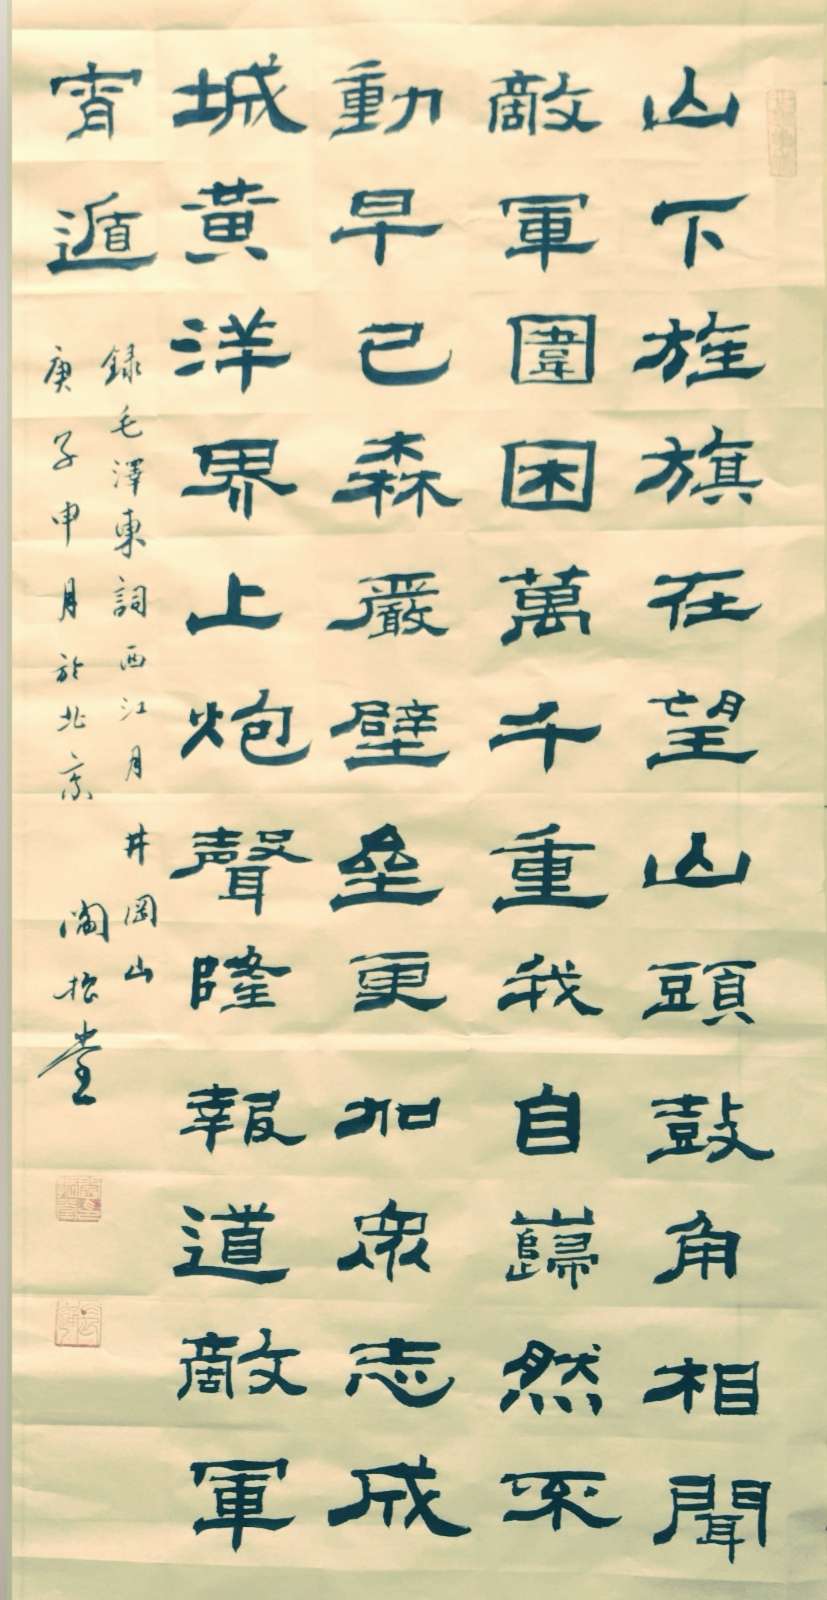 山下旌旗在望山頭鼓角相聞
敵軍圍困萬千重我自巋然不
動早已森嚴壁壘更加眾志成
城黃洋界上炮聲隆報道敵軍
宵遁
録毛澤東詞西江月井岡山
庚子申月於北京
松堂